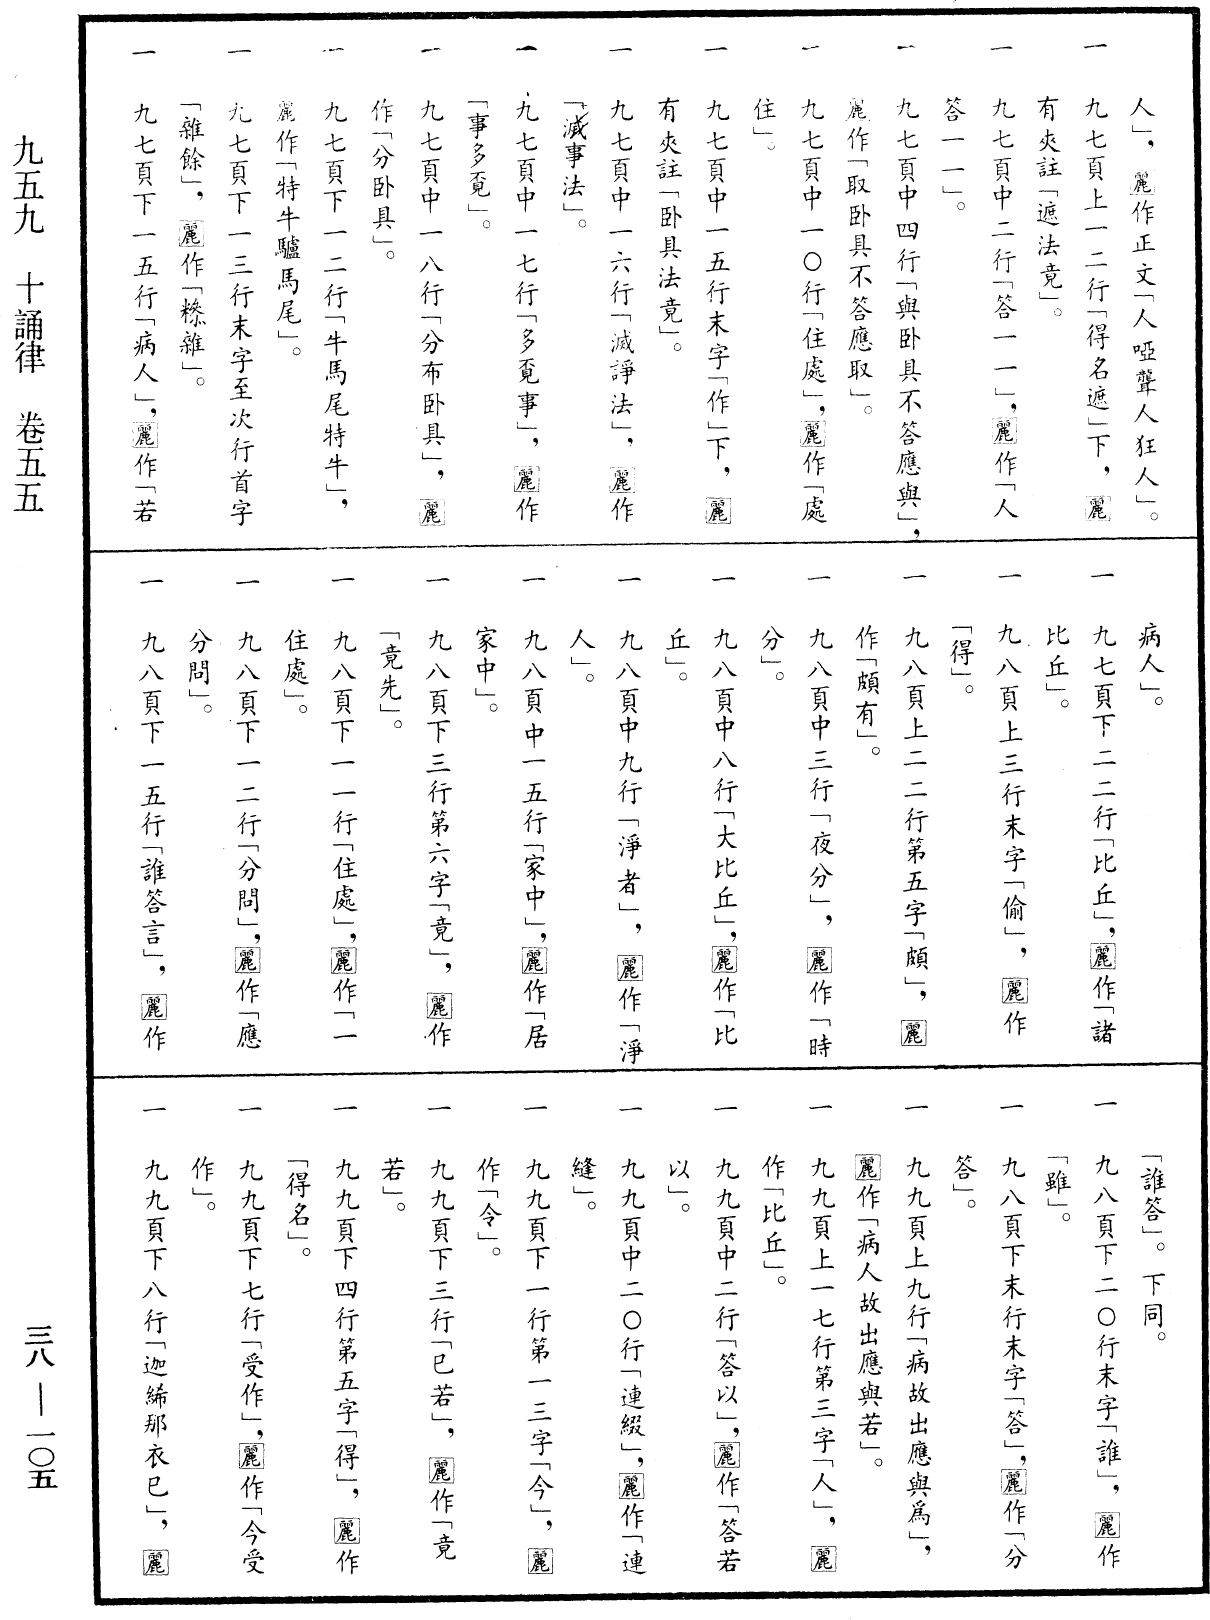 人」，麗作正文「人啞聾人狂人」。
一　九七頁上一二行「得名遮」下，麗
有夾註「遮法竟」。
一　九七頁中二行「答一一」，麗作「人
答一一」。
一　九七頁中四行「與卧具不答應與」，
麗作「取卧具不答應取」。
一　九七頁中一〇行「住處」，麗作「處
住」。
一　九七頁中一五行末字「作」下，麗
有夾註「卧具法竟」。
一　九七頁中一六行「滅諍法」，麗作
「滅事法」。
一　九七頁中一七行「多覔事」，麗作
「事多覔」。
一　九七頁中一八行「分布卧具」，麗
作「分卧具」。
一　九七頁下一二行「牛馬尾特牛」，
麗作「特牛驢馬尾」。
一　九七頁下一三行末字至次行首字
「雜餘」，麗作「糝雜」。
一　九七頁下一五行「病人」，麗作「若
病人」。
一　九七頁下二二行「比丘」，麗作「諸
比丘」。
一　九八頁上三行末字「偷」，麗作
「得」。
一　九八頁上二二行第五字「頗」，麗
作「頗有」。
一　九八頁中三行「夜分」，麗作「時
分」。
一　九八頁中八行「大比丘」，麗作「比
丘」。
一　九八頁中九行「淨者」，麗作「淨
人」。
一　九八頁中一五行「家中」，麗作「居
家中」。
一　九八頁下三行第六字「竟」，麗作
「竟先」。
一　九八頁下一一行「住處」，麗作「一
住處」。
一　九八頁下一二行「分問」，麗作「應
分問」。
一　九八頁下一五行「誰答言」，麗作
「誰答」。下同。
一　九八頁下二〇行末字「誰」，麗作
「雖」。
一　九八頁下末行末字「答」，麗作「分
答」。
一　九九頁上九行「病故出應與爲」，
麗作「病人故出應與若」。
一　九九頁上一七行第三字「人」，麗
作「比丘」。
一　九九頁中二行「答以」，麗作「答若
以」。
一　九九頁中二〇行「連綴」，麗作「連
縫」。
一　九九頁下一行第一三字「今」，麗
作「令」。
一　九九頁下三行「已若」，麗作「竟
若」。
一　九九頁下四行第五字「得」，麗作
「得名」。
一　九九頁下七行「受作」，麗作「今受
作」。
一　九九頁下八行「迦絺那衣已」，麗
九五九　十誦律　卷五五
三八—一〇五